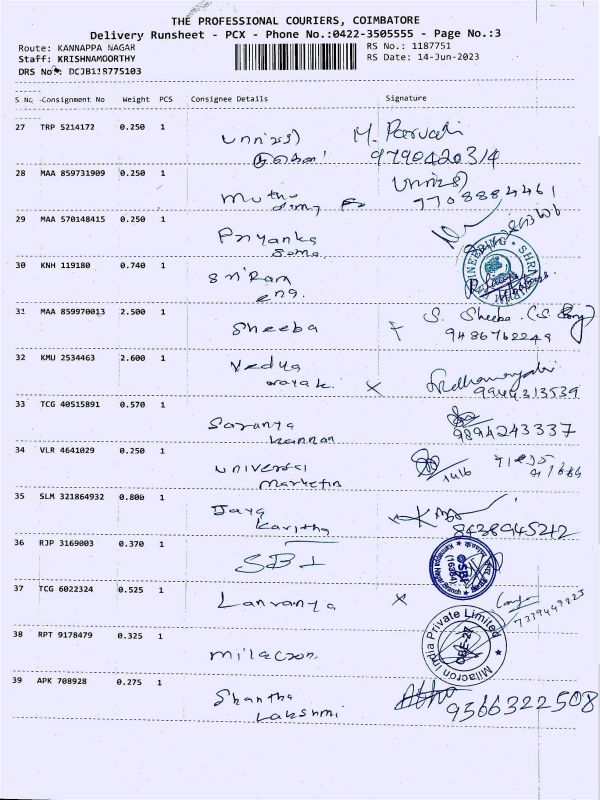 THE PROFESSIONAL COURIERS, COIMBATORE
Delivery Runsheet - PCX - Phone No.:0422-3505555 - Page No.:3
Route: KANNAPPA NAGAR
RS No.: 1187751
Staff: KRISHNAMOORTHY
RS Date: 14-Jun-2023
DRS No.: DCJB118775103
S No Consignment No Weight PCS Consignee Details Signature
27 TRP 5214172 0.250 1 M. Parvathi
9790420314
28 MAA 859731909 0.250 1 Muthu
7708884461
29 MAA 570148415 0.250 1 Priyanka
30 KNH 119180 0.740 1 Sri Ram
eng.
ENGINEERING
31 MAA 859970013 2.500 1 Sheeba S. Sheeba
9486762249
32 KMU 2534463 2.600 1 Vedya
9944313539
33 TCG 40515891 0.570 1 Saranya
Kannan 9894243337
34 VLR 4641029 0.250 1 Universal
Marketin 14/6
35 SLM 321864932 0.800 1 Jaya
Kavitha 8438945212
36 RJP 3169003 0.370 1 SBI
SBI
37 TCG 6022324 0.525 1 Lanvanya
38 RPT 9178479 0.325 1 Milacron.
Milacron India Private Limited
39 APK 708928 0.275 1 Shantha
Lakshmi 9566322508